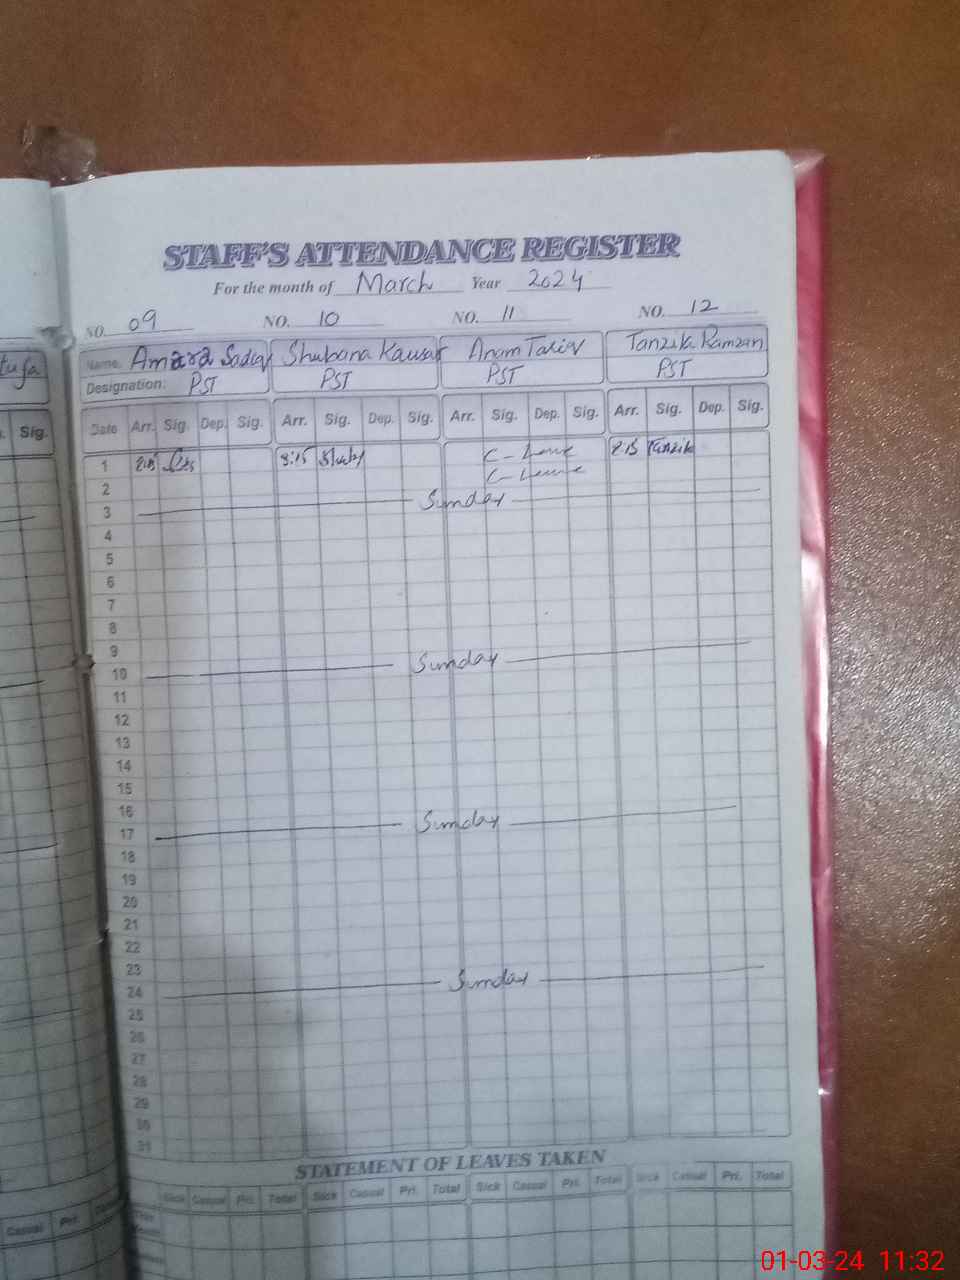 STAFF'S ATTENDANCE REGISTER
For the month of March Year 2024
NO. 09 NO. 10 NO. 11 NO. 12
Name. Amara Sadiq Shubana Kausar Anam Tariq Tanzila Ramzan
Designation: PST PST PST PST
Sig.
Date Arr. Sig. Dep. Sig. Arr. Sig. Dep. Sig. Arr. Sig. Dep. Sig. Arr. Sig. Dep. Sig.
1 8:15 8:15 C-Leave 8:15 Tanzila
2 C-Leave
3 Sunday
4
5
6
7
8
9
10 Sunday
11
12
13
14
15
16
17 Sunday
18
19
20
21
22
23
24 Sunday
25
26
27
28
29
30
31
STATEMENT OF LEAVES TAKEN
Sick Casual Pri. Total Sick Casual Pri. Total Sick Casual Pri. Total Sick Casual Pri. Total
Casual Pri.
01-03-24 11:32